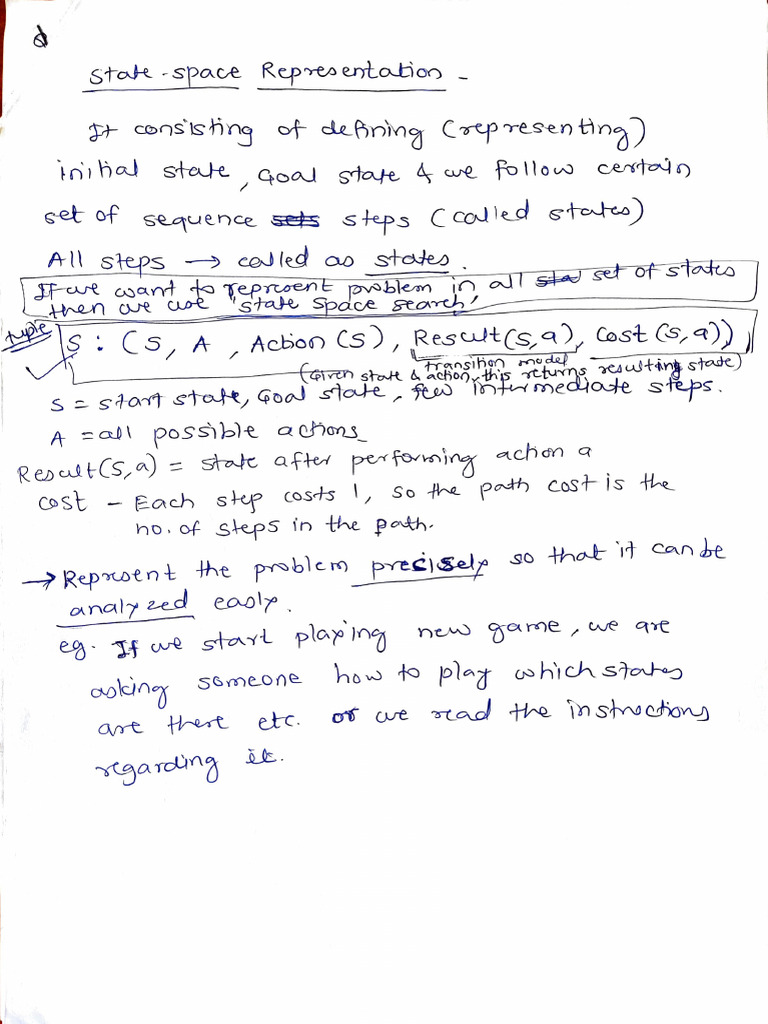 State-space Representation -
It consisting of defining (representing)
initial state, Goal state & we follow certain
set of sequence sets steps (called states)
All steps → called as states.
If we want to represent problem in all sta set of states
then we use "state space search"
tuple
S : (S, A, Action(s), Result(s,a), Cost(s,a))
transition model
(Given state & action, this returns resulting state)
S = start state, Goal state, few intermediate steps.
A = all possible actions
Result(s,a) = state after performing action a
cost - Each step costs 1, so the path cost is the
no. of steps in the path.
→ Represent the problem precisely so that it can be
analyzed easly.
eg. If we start playing new game, we are
asking someone how to play which states
are there etc. or we read the instructions
regarding it.